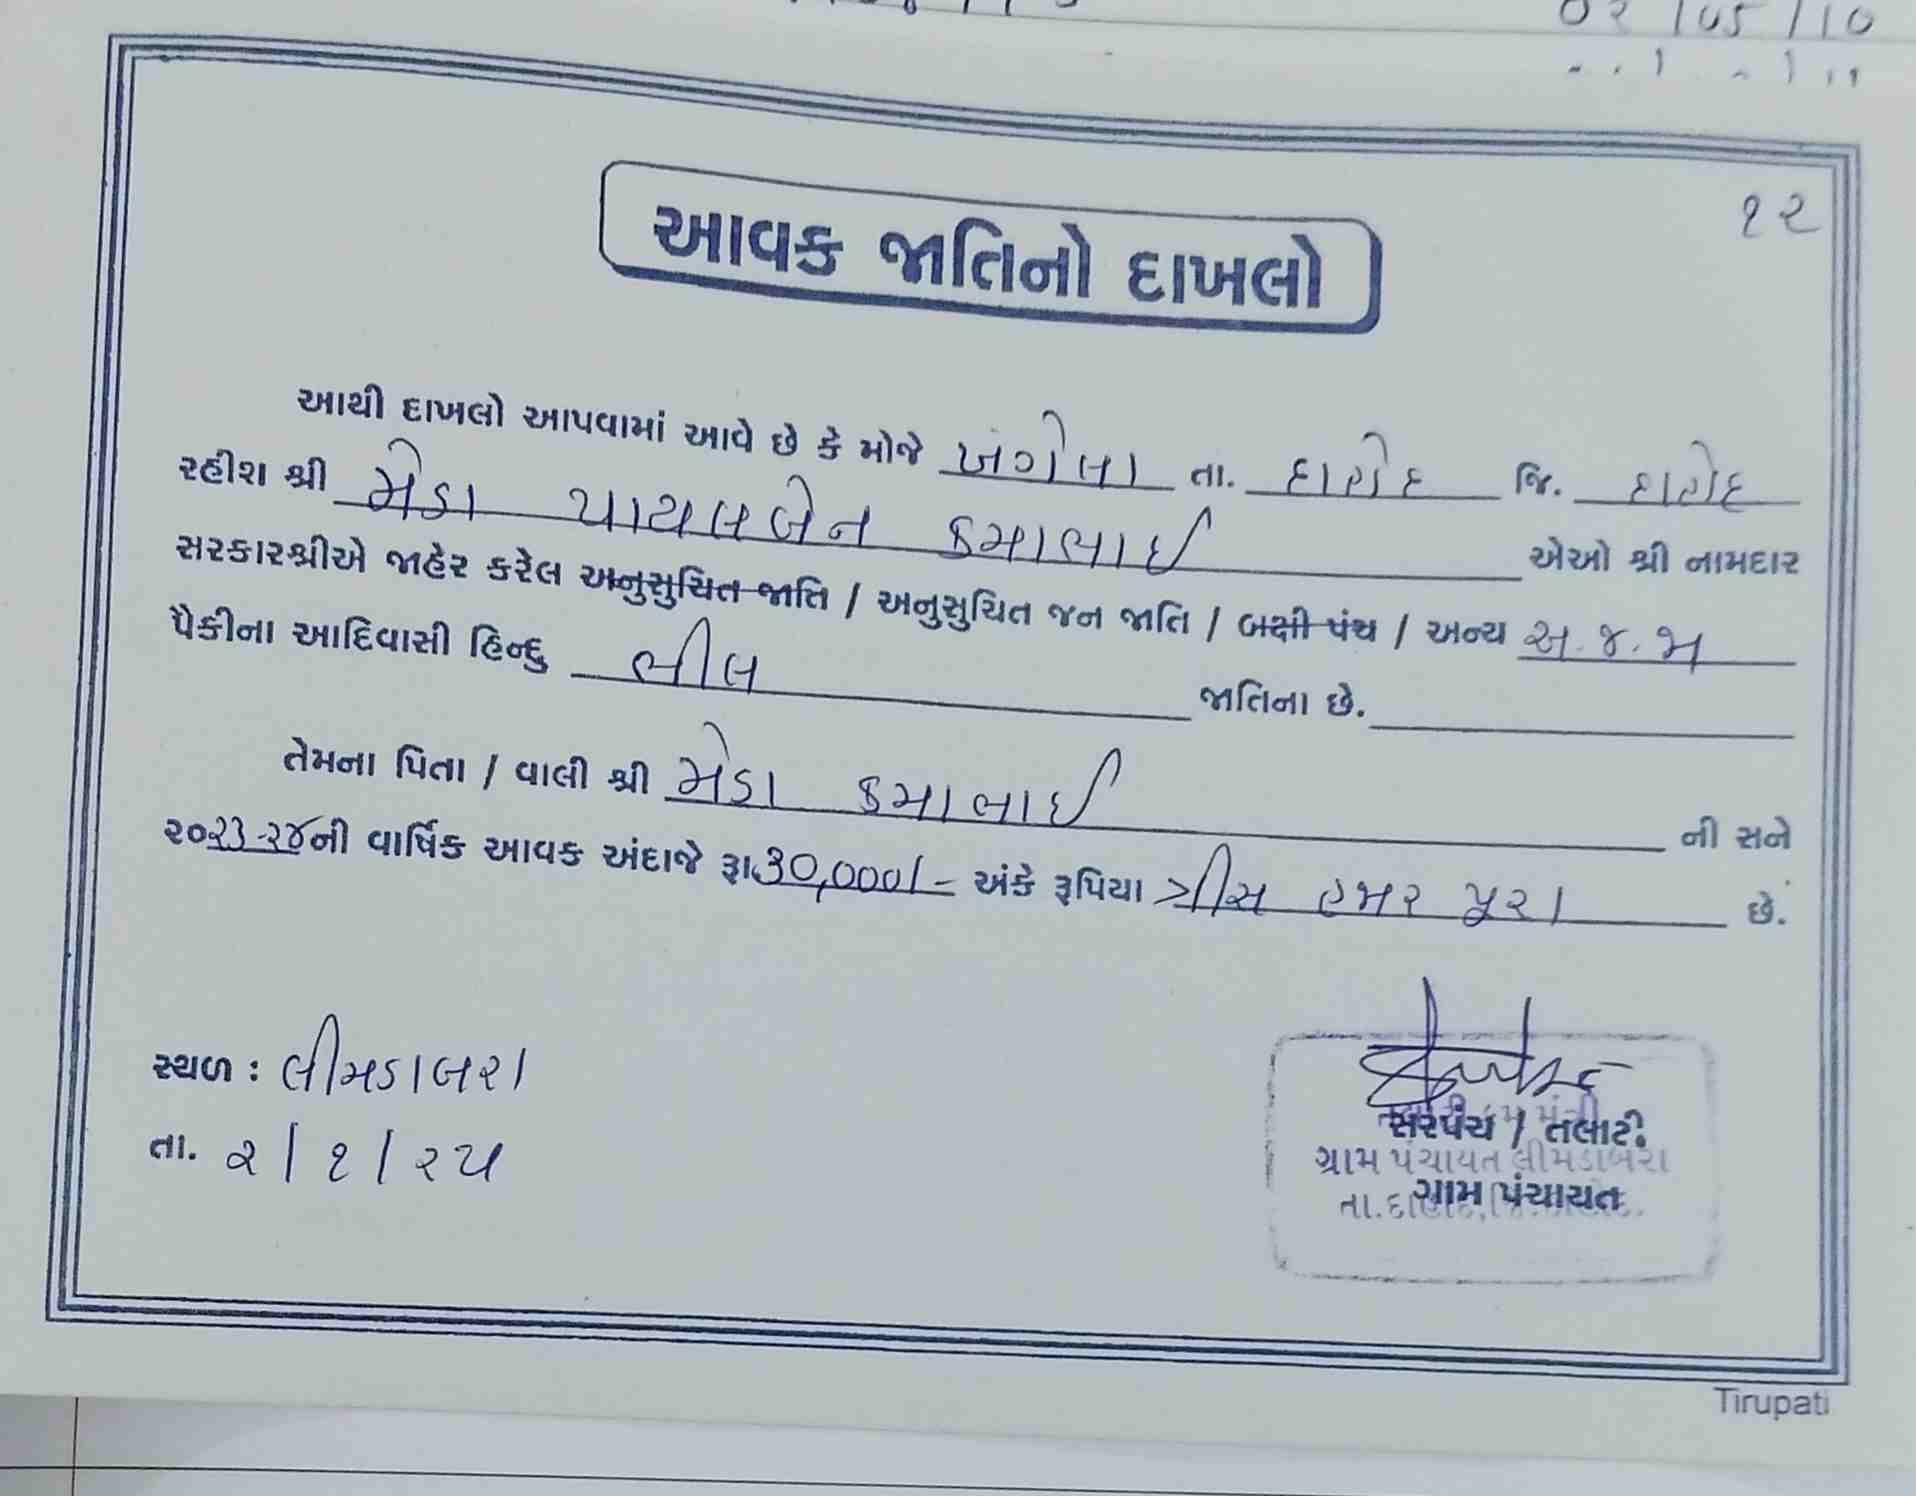 ૦૨/૦5/10
૧૨
આવક જાતિનો દાખલો
આથી દાખલો આપવામાં આવે છે કે મોજે ખંગેલા તા. દાહોદ જિ. દાહોદ
રહીશ શ્રી મેડા પાયલબેન કમાભાઈ એઓ શ્રી નામદાર
સરકારશ્રીએ જાહેર કરેલ અનુસુચિત જાતિ / અનુસુચિત જન જાતિ / બક્ષી પંચ / અન્ય અ.જ.જા
પૈકીના આદિવાસી હિન્દુ ભીલ જાતિના છે.
તેમના પિતા / વાલી શ્રી મેડા કમાભાઈ ની સને
૨૦૨૩-૨૪ની વાર્ષિક આવક અંદાજે રૂા.૩૦,૦૦૦/- અંકે રૂપિયા ત્રીસ હજાર પૂરા છે.
સ્થળ : લીમડાબરા
તા. ૨/૧/૨૫
સરપંચ / તલાટી
ગ્રામ પંચાયત લીમડાબરા
ગ્રામ પંચાયત
તા.દાહોદ,
Tirupati